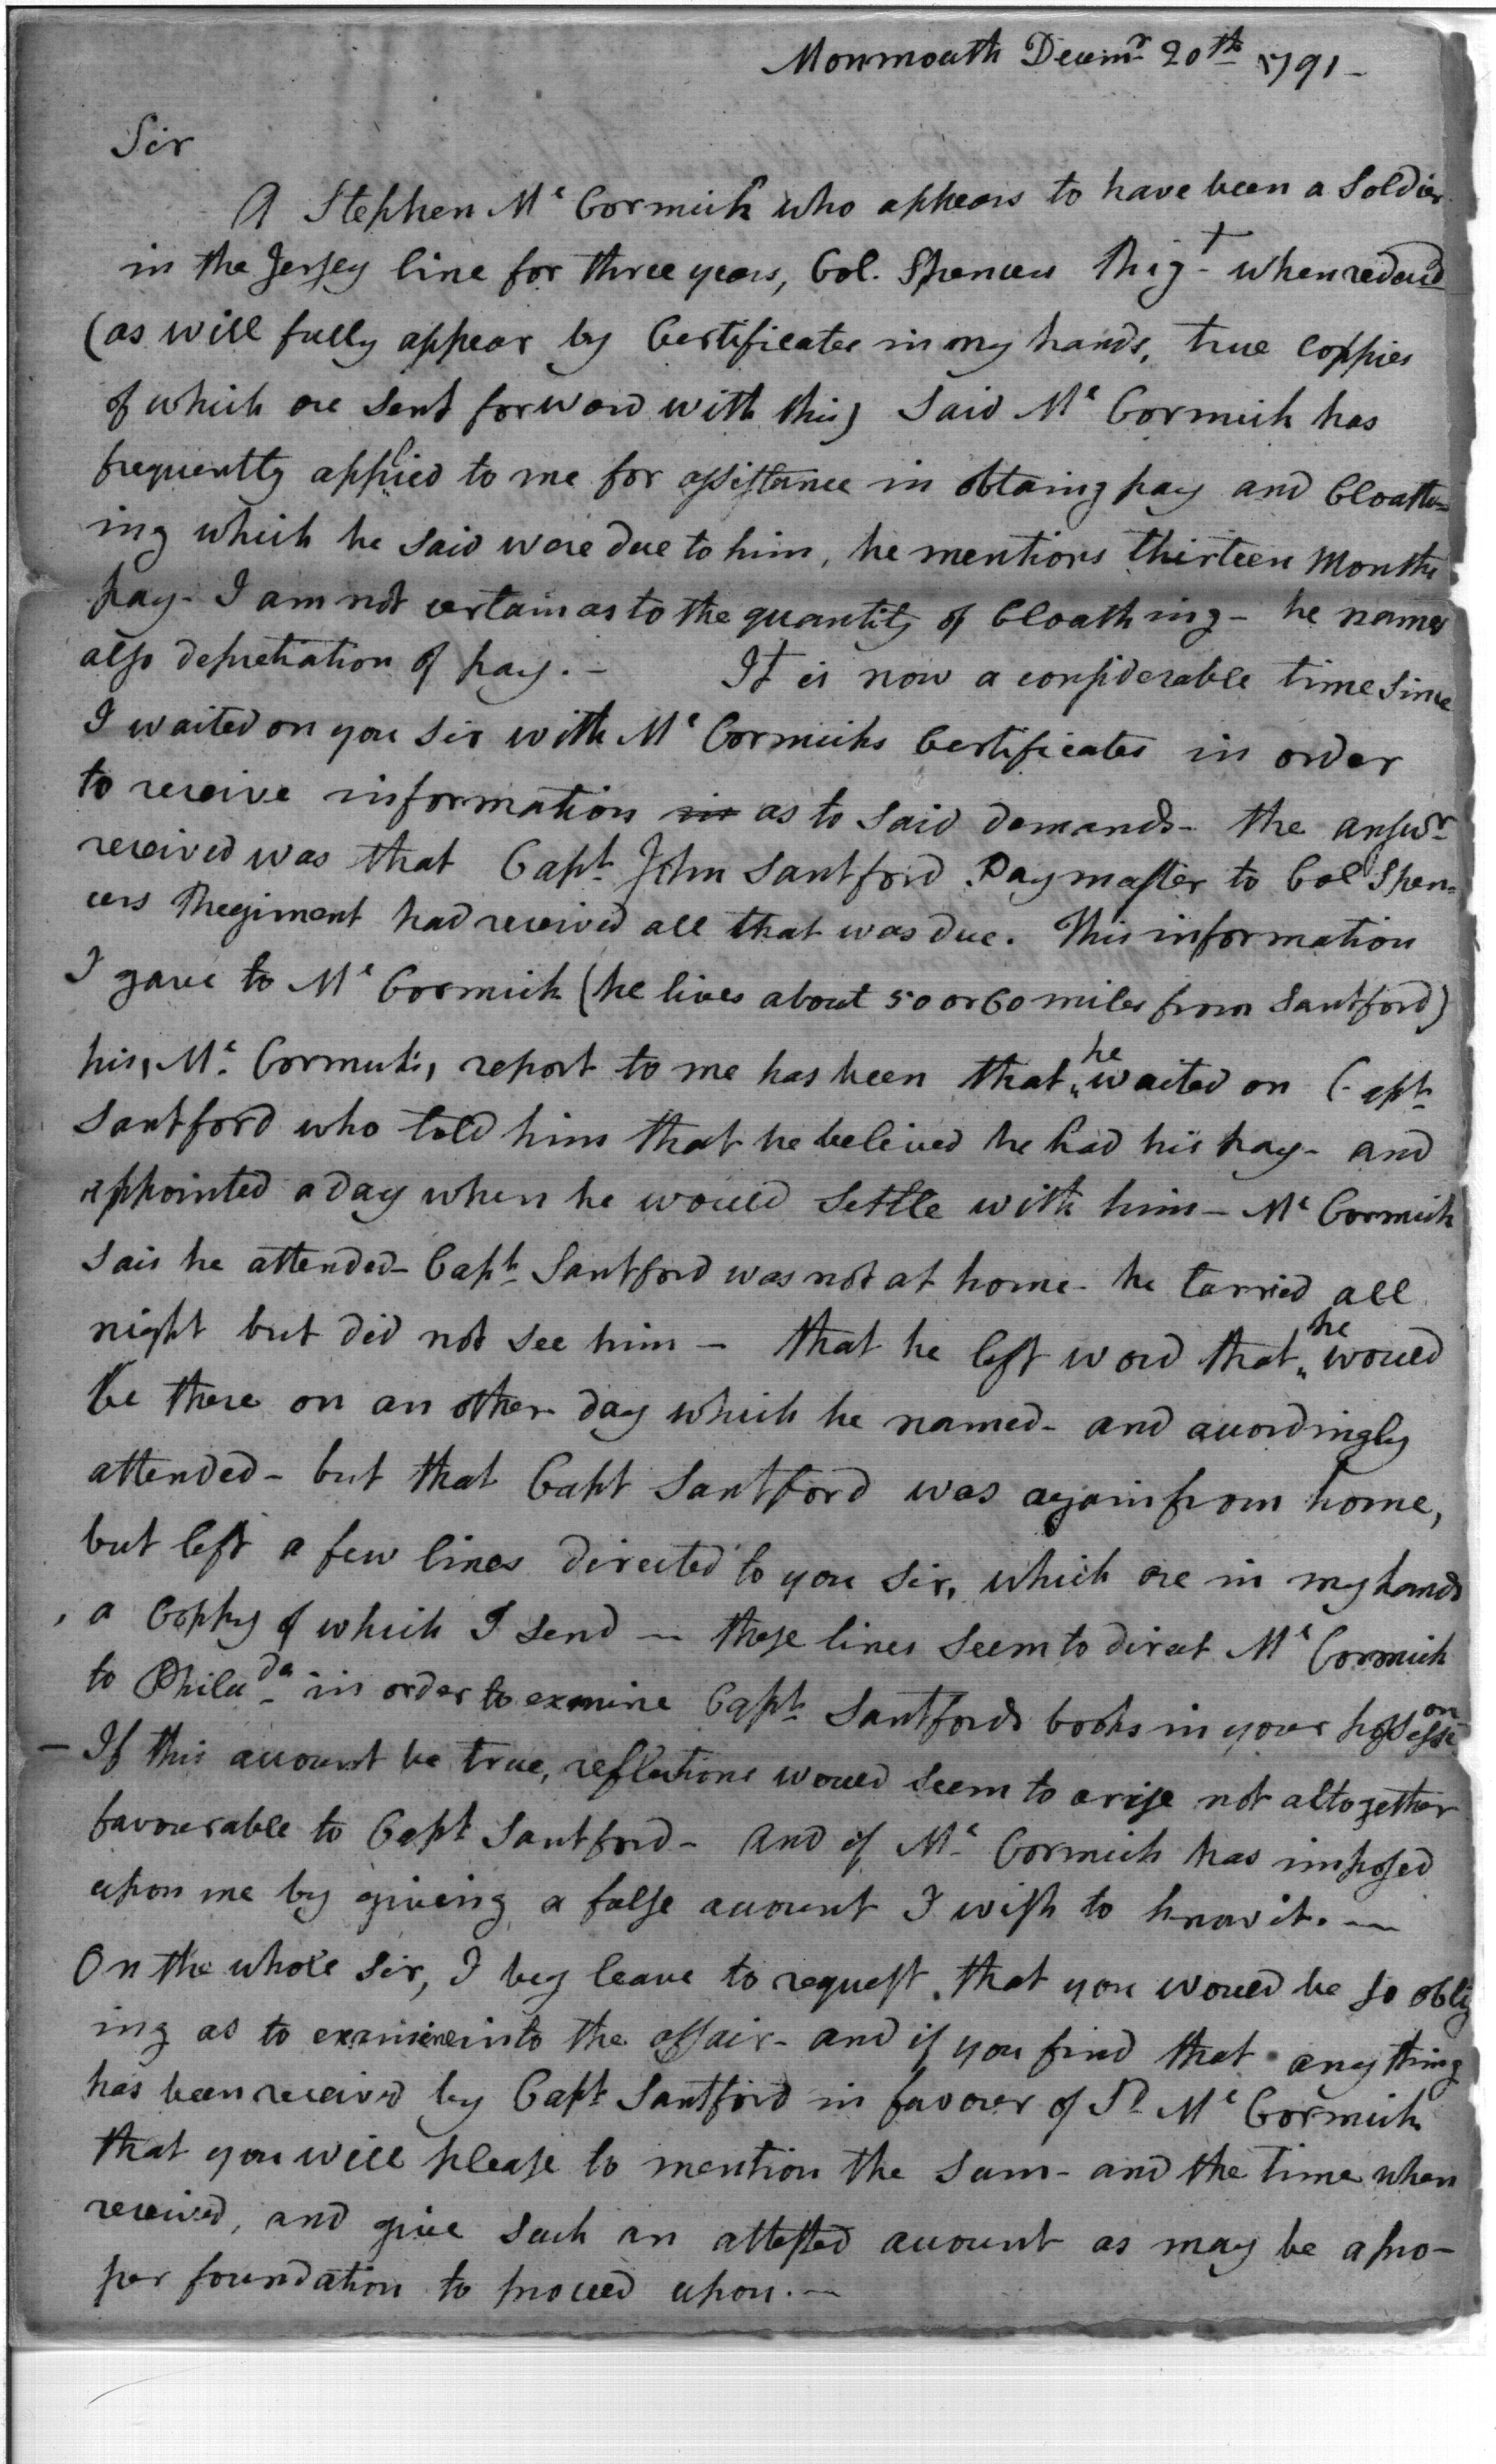 Monmouth Decemr 20th 1791-
Sir
A Stephen Mc Cormick who appears to have been a Soldier
in the Jersey line for three years, Col. Spencers Rigt when reduc'd
(as will fully appear by Certificates in my hands, true Coppies
of which are sent forward with this) Said Mc Cormick has
frequently applied to me for assistance in obtaing pay and Cloath=
ing which he said were due to him, he mentions thirteen Months
pay- I am not certain as to the quantity of Cloathing- he names
also depretiation of pay.- It is now a considerable time since
I waited on you Sir with Mc Cormicks Certificates in order
to receive information in as to said demands- the answr
received was that Capt John Santford Paymaster to Col Spen=
cers Regiment had received all that was due. This information
I gave to Mc Cormick (he lives about 50 or 60 miles from Santford)
his, Mc Cormick's, report to me has been that he waited on Capt
Santford who told him that he believed he had his pay- and
appointed a day when he would settle with him- Mc Cormick
Said he attended- Capt Santford was not at home- he tarried all
night but did not see him - that he left word that he would
be there on an other day which he named- and accordingly
attended- but that Capt Santford was again from home,
but left a few lines directed to you Sir, which are in my hands
, a Coppy of which I send - these lines seem to direct Mc Cormick
to Philada in order to exmine Capt Santfords books in your possession
- If this account be true, reflections would seem to arise not altogether
favourable to Capt Santford- and if Mc Cormick has imposed
upon me by giveing a false account I wish to know it. -
On the whole Sir, I beg leave to request that you would be so oblig
ing as to examine into the affair- and if you find that anything
has been received by Capt Santford in favour of Sd Mc Cormick
that you will please to mention the Sum- and the time when
received, and give such an attested account as may be a pro-
per foundation to proceed upon.-